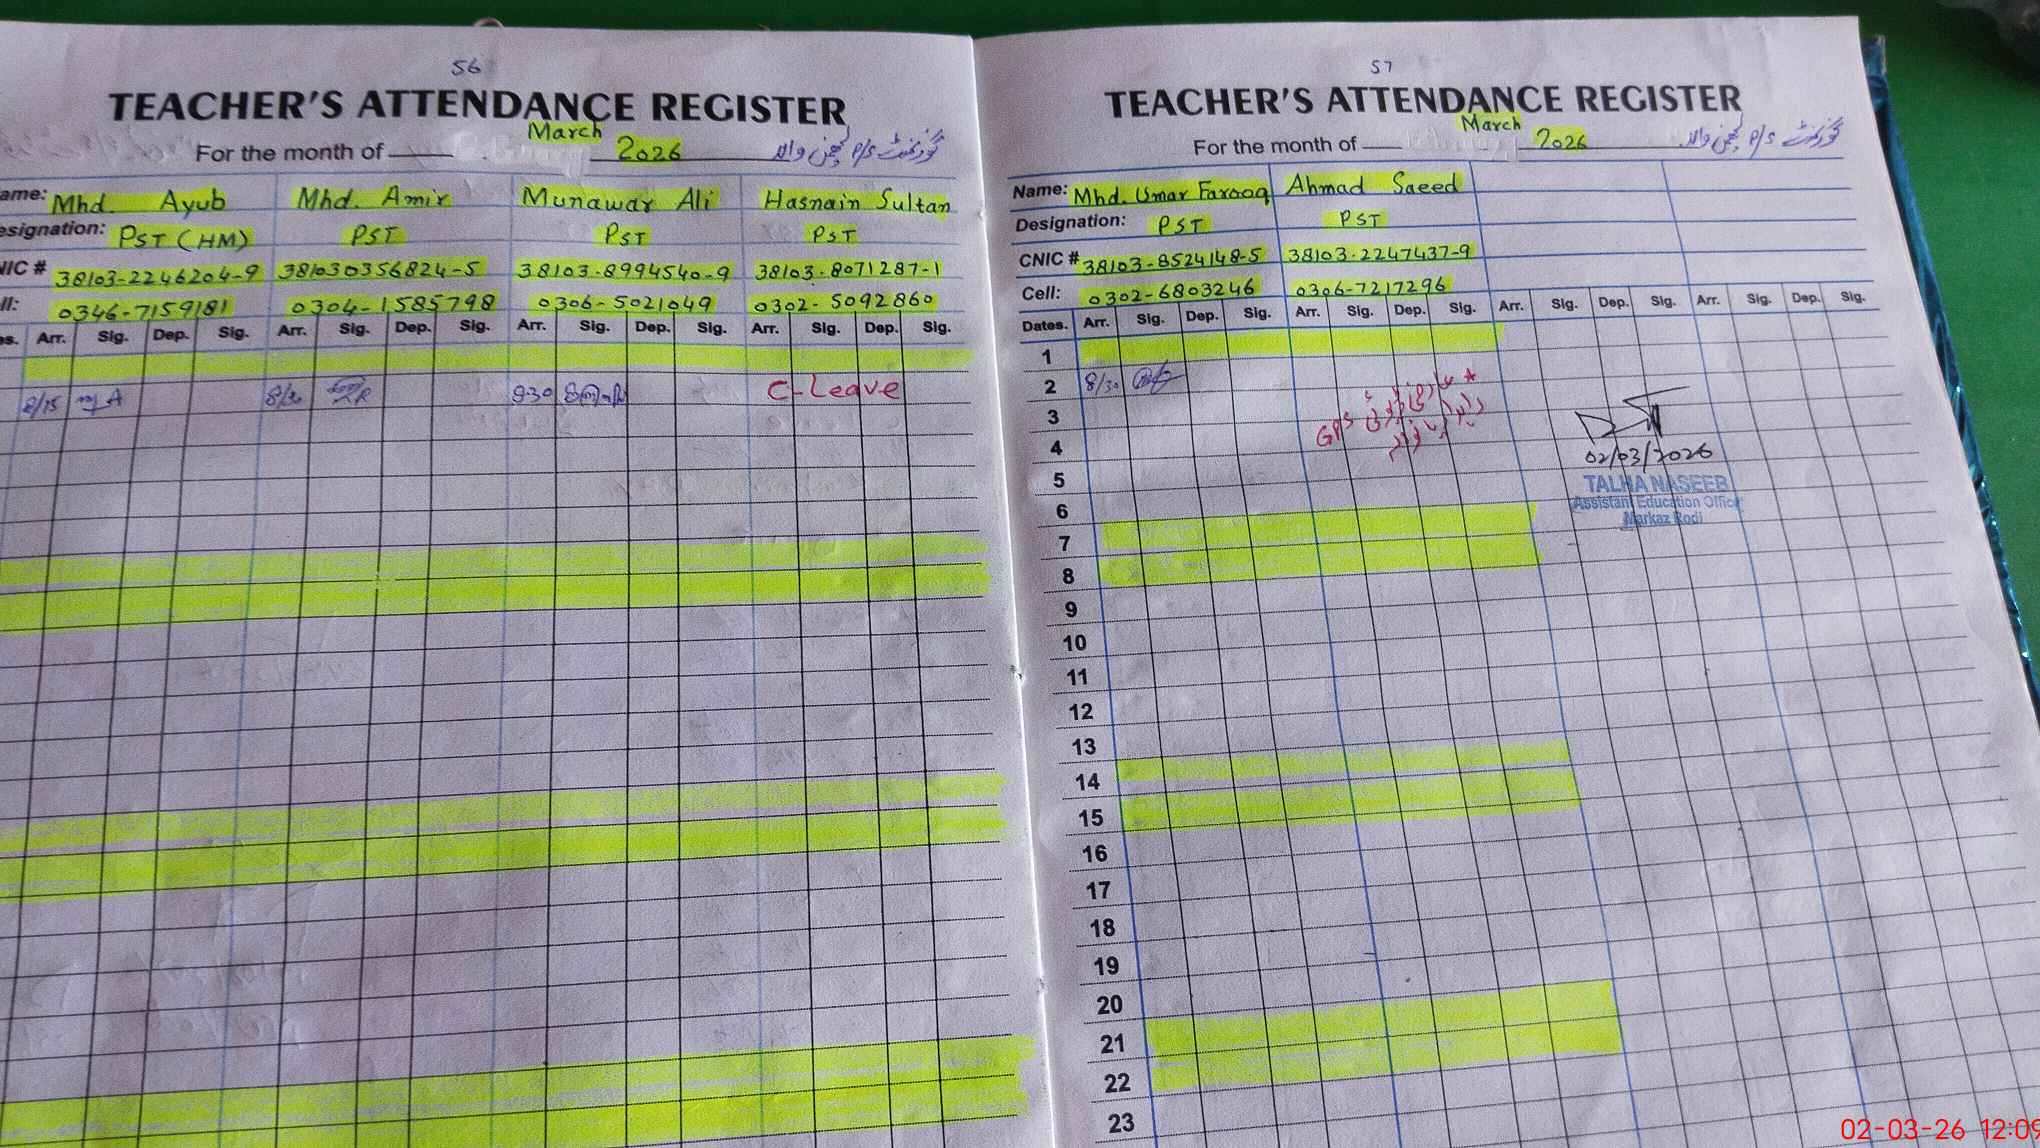 56
TEACHER'S ATTENDANCE REGISTER
For the month of March 2026 گورنمنٹ P/S
ame: Mhd. Ayub Mhd. Amir Munawar Ali Hasnain Sultan
esignation: PST (HM) PST PST PST
NIC # 38103-2246204-9 381030356824-5 38103-8994540-9 38103-8071287-1
ll: 0346-7159181 0304-1585798 0306-5021049 0302-5092860
es. Arr. Sig. Dep. Sig. Arr. Sig. Dep. Sig. Arr. Sig. Dep. Sig. Arr. Sig. Dep. Sig.
8/15 8/30 8:30 C-Leave
57
TEACHER'S ATTENDANCE REGISTER
For the month of March 2026 گورنمنٹ P/S
Name: Mhd. Umar Farooq Ahmad Saeed
Designation: PST PST
CNIC # 38103-8524148-5 38103-2247437-9
Cell: 0302-6803246 0306-7217296
Dates. Arr. Sig. Dep. Sig. Arr. Sig. Dep. Sig. Arr. Sig. Dep. Sig. Arr. Sig. Dep. Sig.
1
2 8/30
3
GPS
4
02/03/2026
5
TALHA NASEEB
Assistant Education Officer
Markaz Rodi
6
7
8
9
10
11
12
13
14
15
16
17
18
19
20
21
22
23
02-03-26 12:09